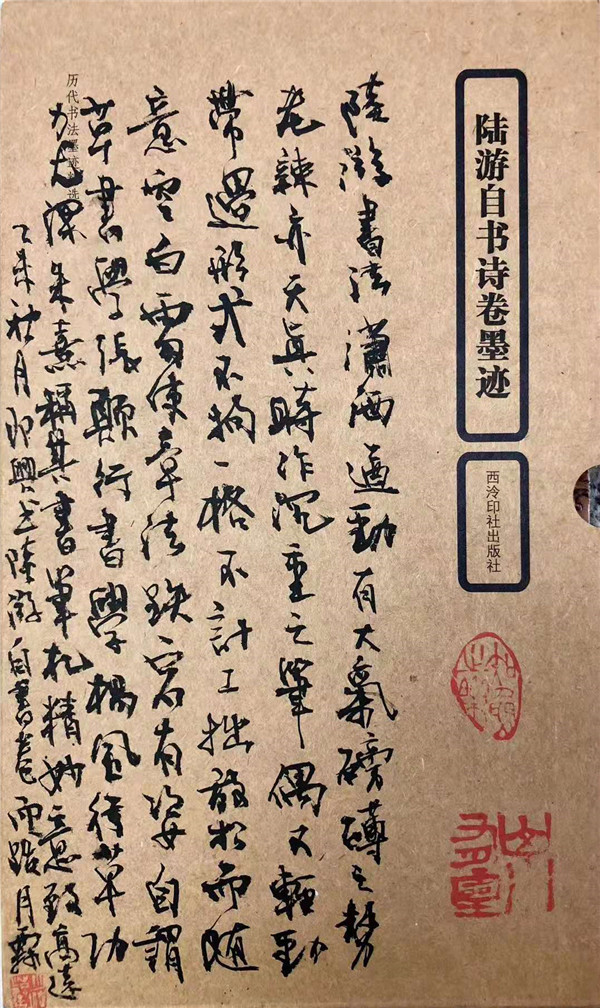 陆游自书诗卷墨迹
西泠印社出版社
历代书法墨迹选
陸游書法瀟洒遒勁有大氣磅礴之勢
老辣亦天真時作沉重之筆偶又輕動
帶過形式不拘一格不計工拙放松而随
意空白章法跌宕有姿自謂
草書學張顛行書學楊風行草功
力尤深朱熹稱其書筆札精妙意致高遠
乙未秋月即興書陸游自書卷而跋月霖